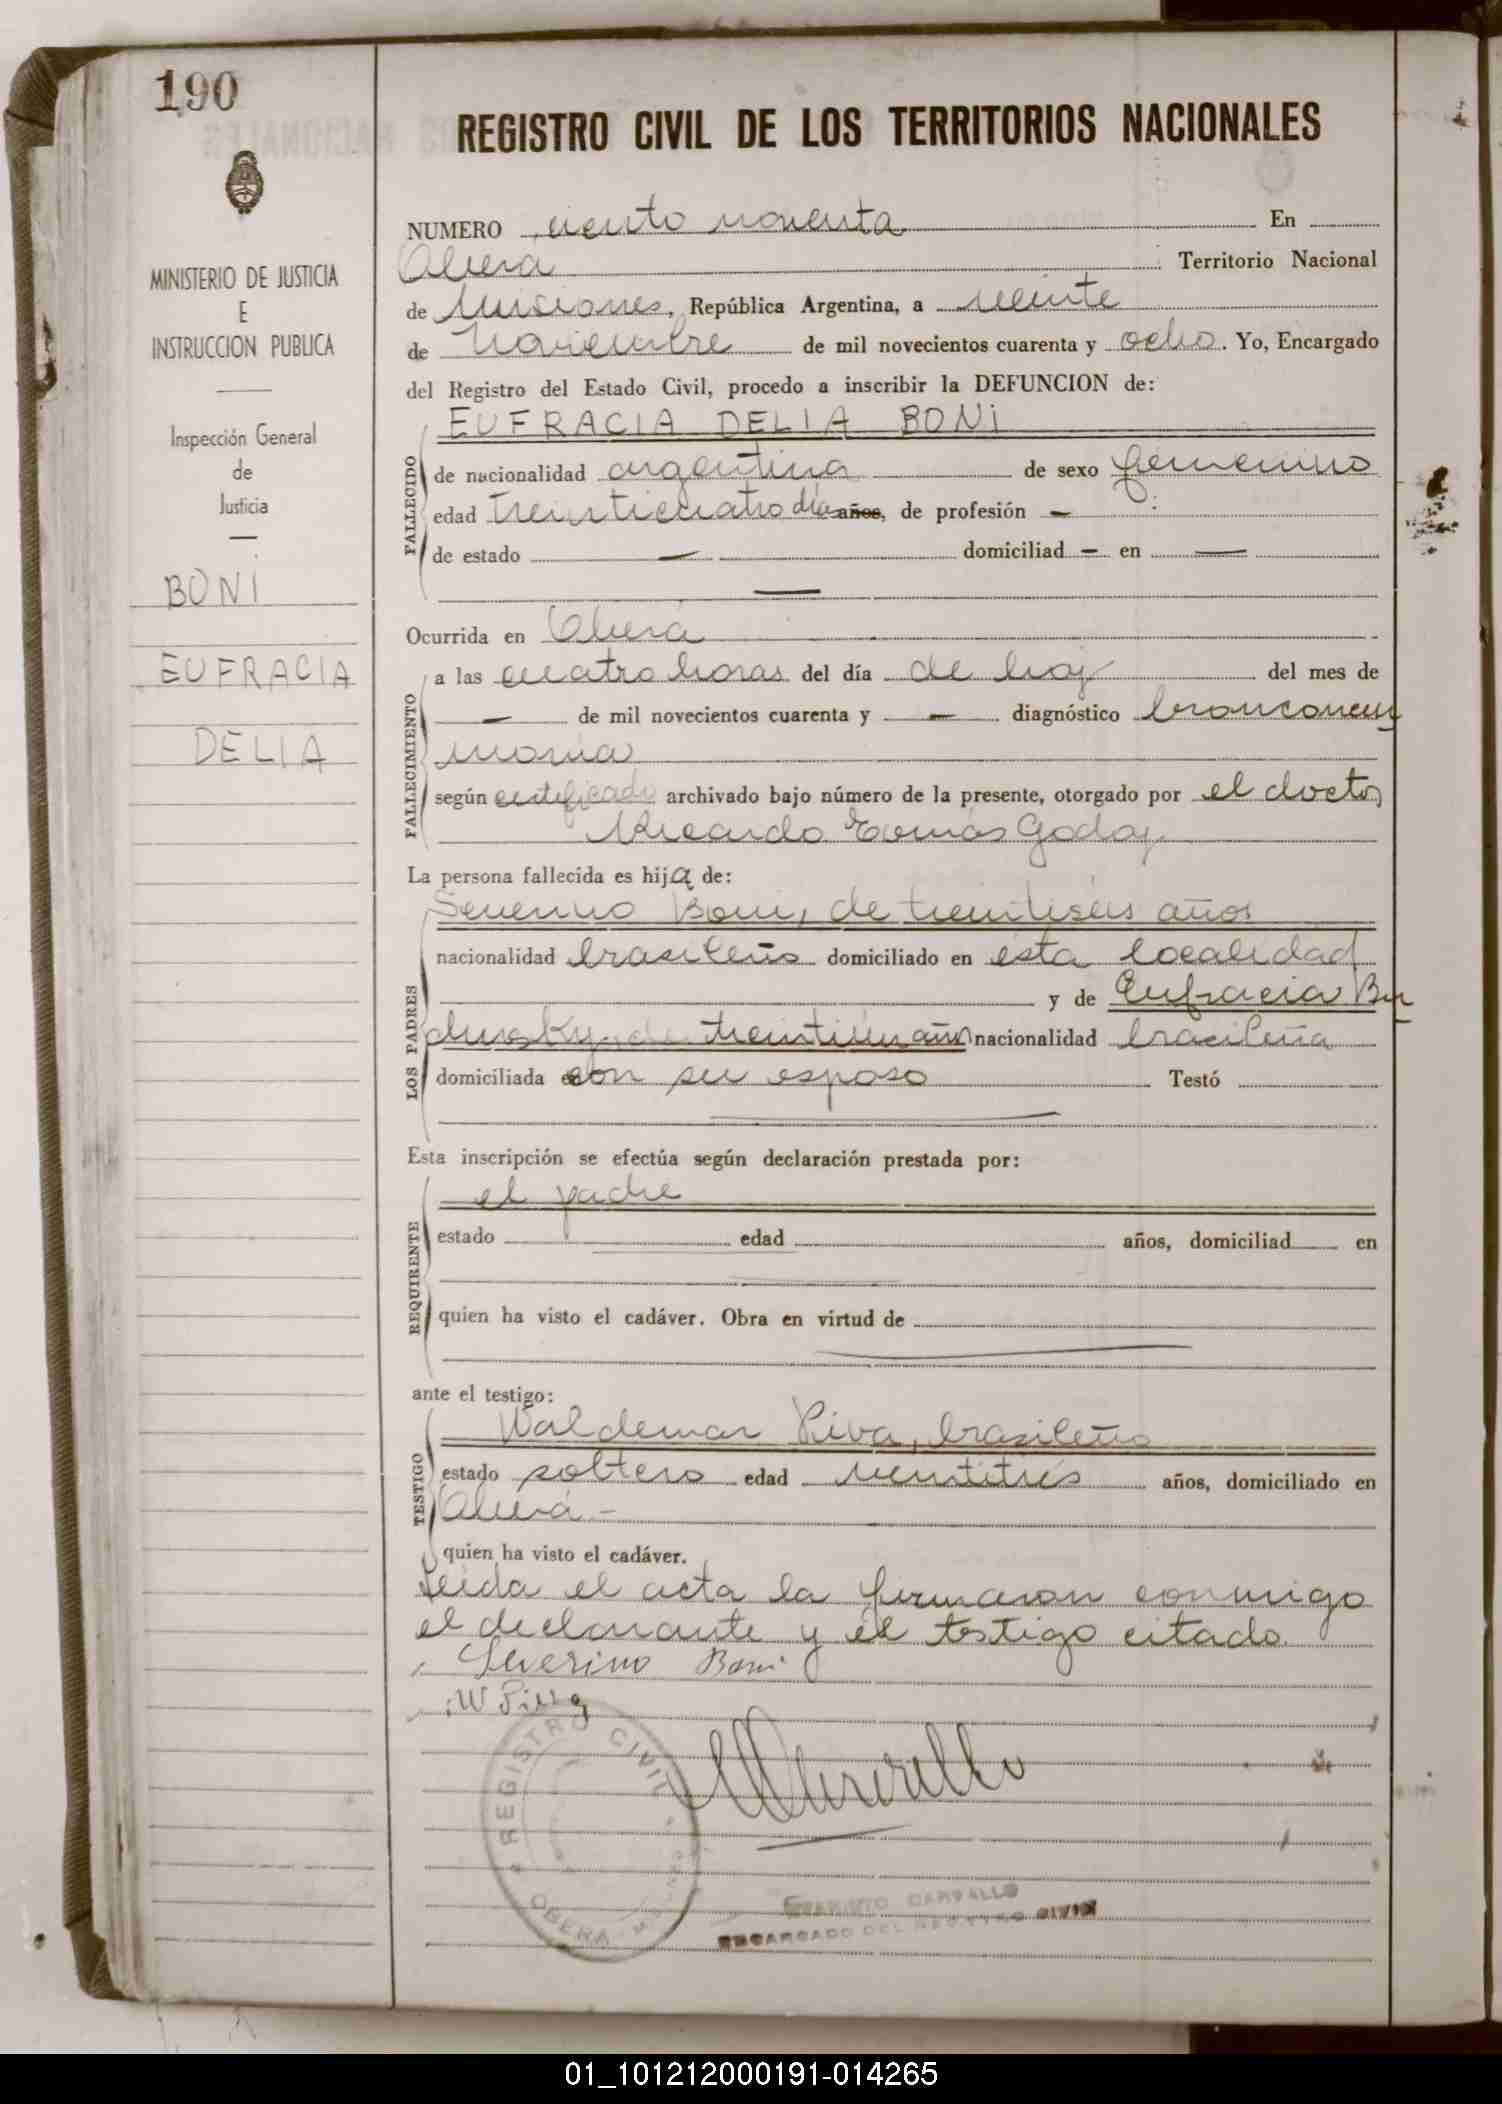 190
REGISTRO CIVIL DE LOS TERRITORIOS NACIONALES
MINISTERIO DE JUSTICIA
E
INSTRUCCION PUBLICA
Inspección General
de
Justicia
BONI
EUFRACIA
DELIA
NUMERO ciento noventa En
Oberá Territorio Nacional
de Misiones, República Argentina, a veinte
de Noviembre de mil novecientos cuarenta y ocho. Yo, Encargado
del Registro del Estado Civil, procedo a inscribir la DEFUNCION de:
EUFRACIA DELIA BONI
FALLECIDO
de nacionalidad argentina de sexo femenino
edad treinticuatro días años, de profesión —
de estado — domiciliad — en —
—
Ocurrida en Oberá
FALLECIMIENTO
a las cuatro horas del día de hoy del mes de
— de mil novecientos cuarenta y — diagnóstico bronconeu
monia
según certificado archivado bajo número de la presente, otorgado por el doctor
Ricardo Tomás Godoy
La persona fallecida es hija de:
LOS PADRES
Severino Boni, de treintiséis años
nacionalidad brasileño domiciliado en esta localidad
y de Eufracia
de treintiún años nacionalidad brasileña
domiciliada con su esposo Testó
Esta inscripción se efectúa según declaración prestada por:
REQUIRENTE
el padre
estado edad años, domiciliad en
quien ha visto el cadáver. Obra en virtud de
ante el testigo:
TESTIGO
Waldemar Piva, brasileño
estado soltero edad veintitrés años, domiciliado en
Oberá -
quien ha visto el cadáver.
Leida el acta la firmaron conmigo
el declarante y el testigo citado.
Severino Boni
W Piva
REGISTRO CIVIL
OBERA - MISIONES
CARVALLO
ENCARGADO DEL REGISTRO CIVIL
01_101212000191-014265